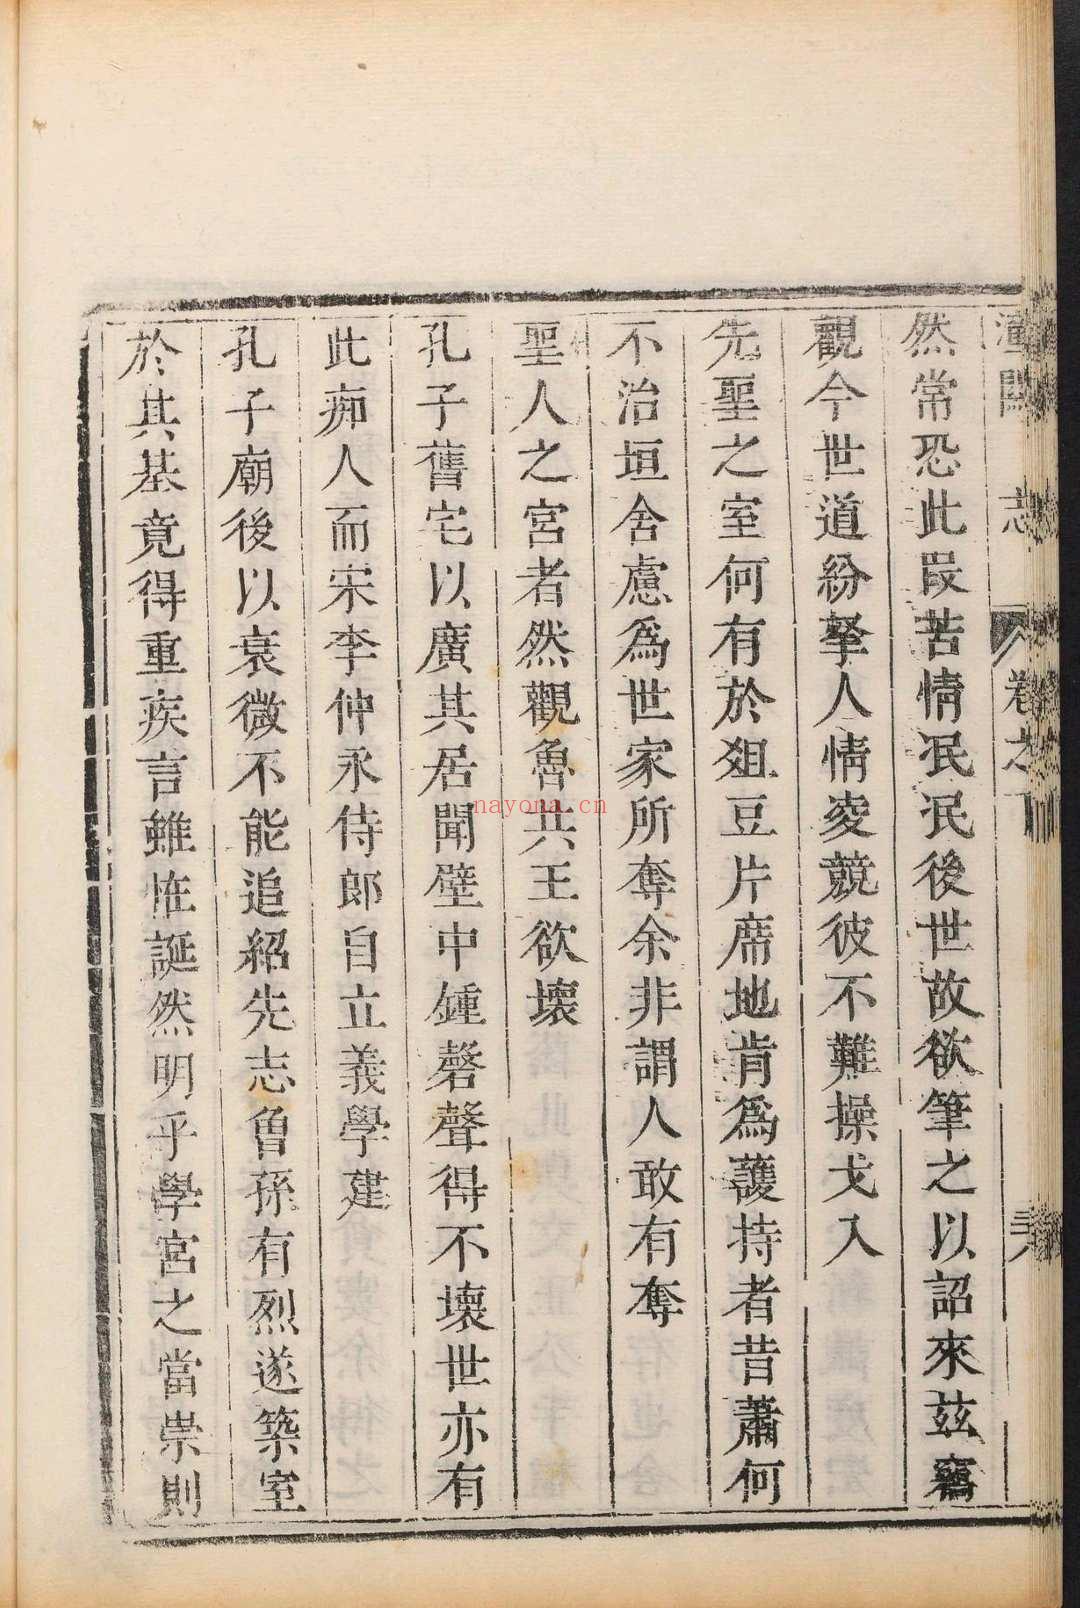 潼關志 卷之下
然常恐此段苦情泯泯後世故欲筆之以詔來茲竊
觀今世道紛拏人情凌競彼不難操戈入
先聖之室何有於爼豆片席地肯爲護持者昔蕭何
不治垣舍慮爲世家所奪余非謂人敢有奪
聖人之宮者然觀魯共王欲壞
孔子舊宅以廣其居聞壁中鍾磬聲得不壞世亦有
此痴人而宋李仲永侍郎自立義學建
孔子廟後以衰微不能追紹先志曾孫有烈遂築室
於其基竟得重疾言雖恠誕然明乎學宮之當崇則
nayona.cn